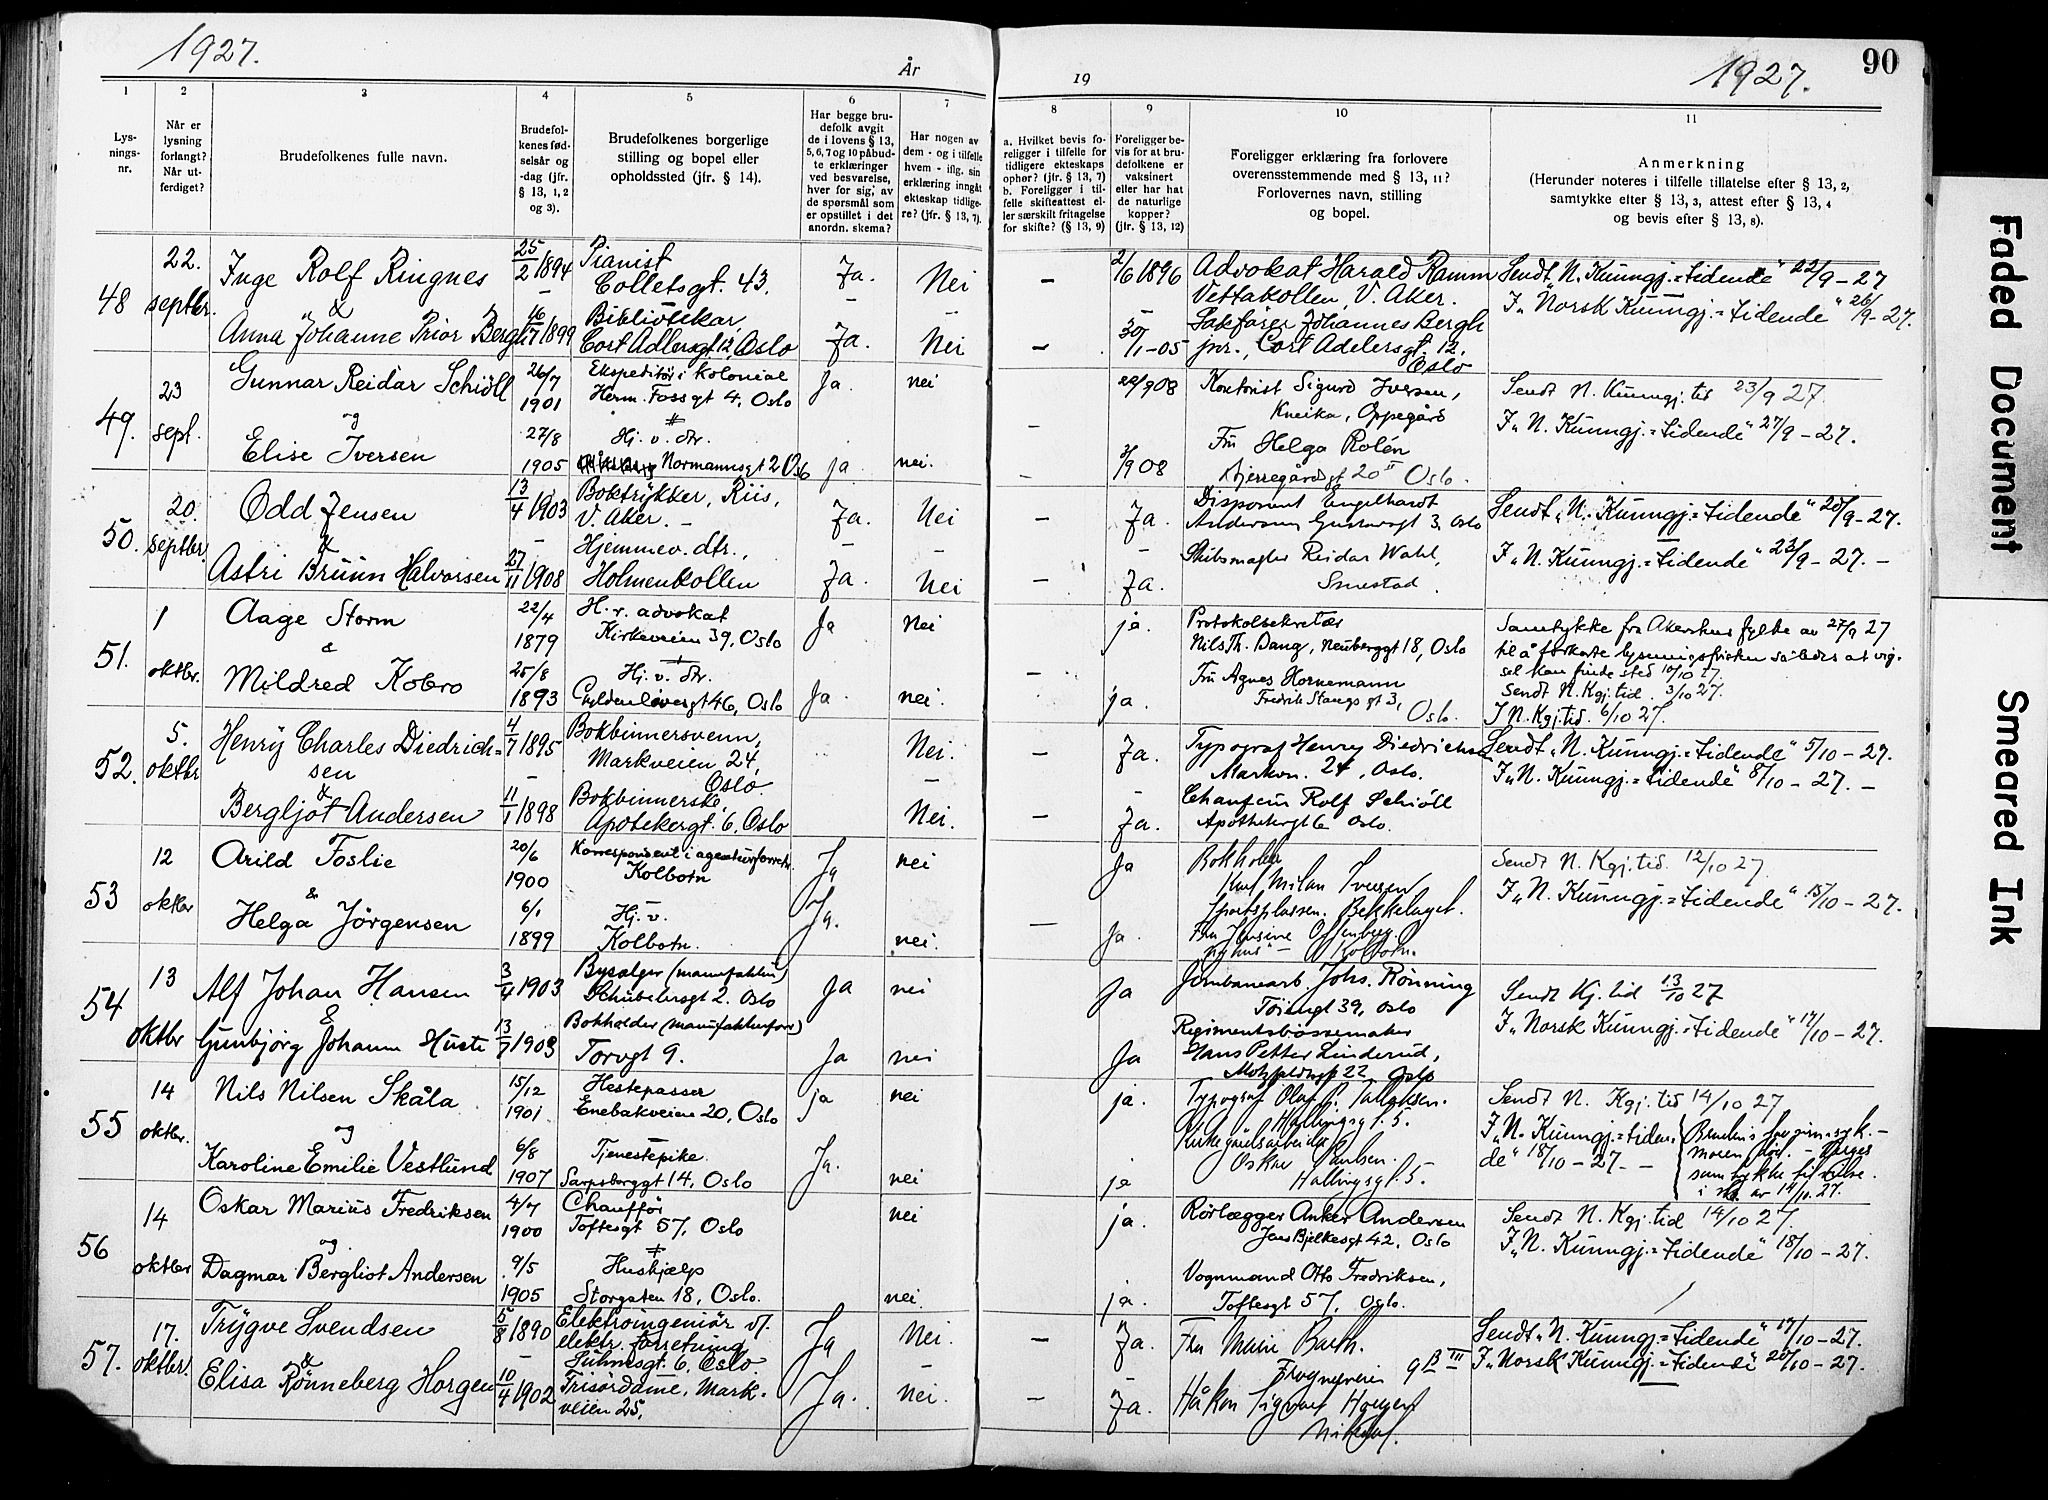 1927.
År
19
1927.
90
1
2
3
4
5
6
7
8
9
10
11
Lys-
nings-
nr.
Når er
lysning
forlangt?
Når ut-
ferdiget?
Brudefolkenes fulle navn.
Brudefol-
kenes fød-
selsår og
-dag (jfr.
§ 13, 1, 2
og 3).
Brudefolkenes borgerlige
stilling og bopel eller
opholdssted (jfr. § 14).
Har begge bru-
defolk avgit
de i lovens § 13,
5, 6, 7 og 10 påbud-
te erklæringer
ved besvarelse,
hver for sig, av
de spørsmål som
er opstillet i det
anordn. skema?
Har nogen av
dem - og i tilfelle
hvem - iflg. sin
erklæring inngåt
ekteskap tidlige-
re? (jfr. § 13, 7).
a. Hvilket bevis fo-
religger i tilfelle for
tidligere ekteskaps
ophør? (jfr. § 13, 7)
b. Foreligger i til-
felle skifteattest el-
ler særskilt fritagelse
for skifte? (§ 13, 9)
Foreligger be-
vis for at bru-
defolkene er
vaksinert
eller har hat
de naturlige
kopper?
(jfr. § 13, 12)
Foreligger erklæring fra forlovere
overensstemmende med § 13, 11?
Forlovernes navn, stilling
og bopel.
Anmerkning
(Herunder noteres i tilfelle tillatelse efter § 13, 2,
samtykke efter § 13, 3, attest efter § 13, 4
og bevis efter § 13, 8).
48
22.
septbr.
Inge Rolf Ringnes
&
Anna Johanne Prior Bergh
25/2 1894
–
16/7 1899
Pianist
Colletsgt. 43.
Bibliotekar,
Cort Adlersgt. 12, Oslo
Ja.
–
Ja.
Nei
–
Nei
–
–
2/6 1896
–
30/1-05
Advokat Harald Ramm
Vettakollen, V. Aker.
Sakfører Johannes Bergh
jnr., Cort Adelersgt. 12.
Oslo
Sendt „N. Kunngj.=tidende“ 22/9-27
I „Norsk Kunngj.=tidende“ 26/9-27.
49.
23
sept.
Gunnar Reidar Schiöll
og
Elise Iversen
26/7
1901
27/8
1905
Ekspeditör i kolonial
Herm. Fossgt 4, Oslo
Hj. v. dtr.
Normannsgt 2 Oslo
Ja.
ja
nei
nei.
–
–
22/9 08
3/9 08
Kontorist Sigurd Iversen,
Kneika, Oppegård
Fru Helga Rolén
Bjerregårdsgt 20 II Oslo.
Sendt N. Kunngj. tid 23/9 27.
I „N. Kunngj.=tidende“ 27/9-27.
50.
20.
septbr.
Odd Jensen
&
Astri Bruun Halvorsen
13/4 1903
–
27/11 1908
Boktrykker, Riis,
V. Aker. –
Hjemmev. dtr.,
Holmenkollen
Ja.
–
Ja.
Nei
–
Nei
–
–
Ja.
–
Ja.
Disponent Engelhardt
Andersen, Gustavsgt 3, Oslo
Skibsmægler Reidar Wahl,
Smestad.
Sendt „N. Kunngj.=tidende“ 20/9-27.
I „N. Kunngj.=tidende“ 23/9-27. –
51.
1
oktbr.
Aage Storm
&
Mildred Kobro
22/4
1879
25/8
1893
H. r. advokat
Kirkeveien 39, Oslo
Hj. v. dtr.
Gyldenlövesgt 46, Oslo
Ja
Ja.
Nei
nei.
–
ja.
ja.
Protokolsekretær
Nils Th. Dang, Neuberggt 18, Oslo
Fru Agnes Hornemann
Fredrik Stangs gt 3,
Oslo.
Samtykke fra Akershus fylke av 27/9 27
til å forkorte lysningsfristen således at vig-
sel kan finde sted 10/10 27.
Sendt N. Kgj. tid. 3/10 27.
I N. Kgj. tid. 6/10 27.
52.
5.
oktbr
Henry Charles Diedrich=
sen
&
Bergljot Andersen
4/7 1895
–
11/1 1898
Bokbinnersvenn,
Markveien 24,
Oslo.
Bokbinnerske,
Apotekergt. 6, Oslo
Nei.
–
Nei.
–
–
Ja.
–
Ja.
Typograf Henry Diedrichsen
Markvn. 24, Oslo.
Chaufeur Rolf Schiöll
Apothekergt 6 Oslo.
Sendt „N. Kunngj.=tidende“ 5/10-27.
I „N. Kunngj.=tidende“ 8/10-27. –
53
12
oktbr
Arild Foslie
&
Helga Jörgensen
20/6
1900
6/1
1899
Korrespondent i agenturforretn.
Kolbotn
Hj. v.
Kolbotn.
Ja
Ja.
nei
nei.
–
Ja
Ja.
Bokholder
Karl Milan Iversen
Sportsplassen. Bekkelaget.
Fru Jensine Offenberg
Kolbotn.
Sendt N. Kgj. tid. 12/10 27.
I „N. Kunngj.=tidende“ 15/10-27.
54
13
oktbr
Alf Johan Hansen
&
Gunbjörg Johanne Huste
3/4 1903
13/7 1903
Bysælger (manufaktur)
Schübelersgt 2. Oslo
Bokholder (manufakturforr)
Torvgt 9.
Ja
Ja
nei
nei
Ja
Ja
Jernbanearb. Johs. Rönning
Töiengt 39, Oslo
Regimentsbössemaker
Hans Petter Linderud,
Motzfeldtsgt 22 Oslo
Sendt Kj. tid 13/10 27
I „Norsk Kunngj.=tidende“ 17/10-27.
55
14
oktbr.
Nils Nilsen Skåla
og
Karoline Emilie Vestlund
15/12
1901.
6/8
1907
Hestepasser
Enebakveien 20, Oslo
Tjenestepike.
Sarpsborggt 14, Oslo
ja
Ja.
nei
nei
ja.
ja
Typograf Olaf P. Tallaksen.
Hallingsgt. 5.
Kirkegårdsarbeider
Oskar Paulsen.
Hallingsgt. 5.
Sendt N. Kgj. tid 14/10 27
I „N. Kunngj.=tiden-
de“ 18/10-27. –
Brudens far sinnssyk. –
moren död. – Verges
samtykke til vielse
i skr. av 14/10. 27.
56
14
oktbr
Oskar Marius Fredriksen
og
Dagmar Bergliot Andersen
4/7
1900
9/5
1905
Chaufför
Toftesgt 57, Oslo
Hushjælp
Storgaten 18, Oslo.
nei
nei.
ja.
ja.
Rörlægger Anker Andersen
Jens Bjelkesgt 42, Oslo
Vognmand Otto Fredriksen,
Toftesgt 57, Oslo.
Sendt N. Kgj. tid 14/10 27.
I „N. Kunngj.=tidende“ 18/10-27.
57.
17.
oktbr.
Trygve Svendsen
&
Elisa Rönneberg Horgen
5/8 1890
–
10/4 1902
Elektroingeniör v/.
elektr. forretning
Suhmsgt. 6, Oslo
Frisördame, Mark-
veien 25.
Ja
Ja.
Nei.
–
Nei.
–
–
Ja.
–
Ja.
Fru Marie Barth.
Frognerveien 9 B III
Håkon Sigvart Horgen
Sendt „N. Kunngj.=tidende“ 17/10-27.
I „Norsk Kunngj.=tidende“ 20/10-27.
Faded Document
Smeared Ink